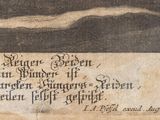 Reiger Beiden,
in Wunder ist
arcken Hungers-Leiden,
eilen selbst gespist.
I. A. Pfeffel excud. Aug